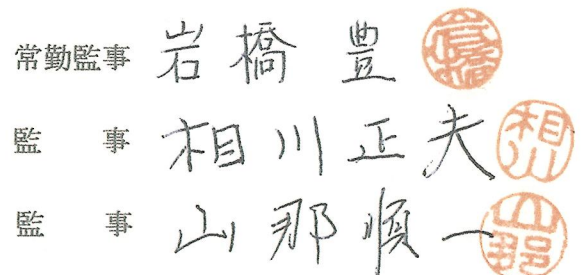 常勤監事 岩橋 豊 岩橋
監事 相川正夫 相川
監事 山那順一 山那